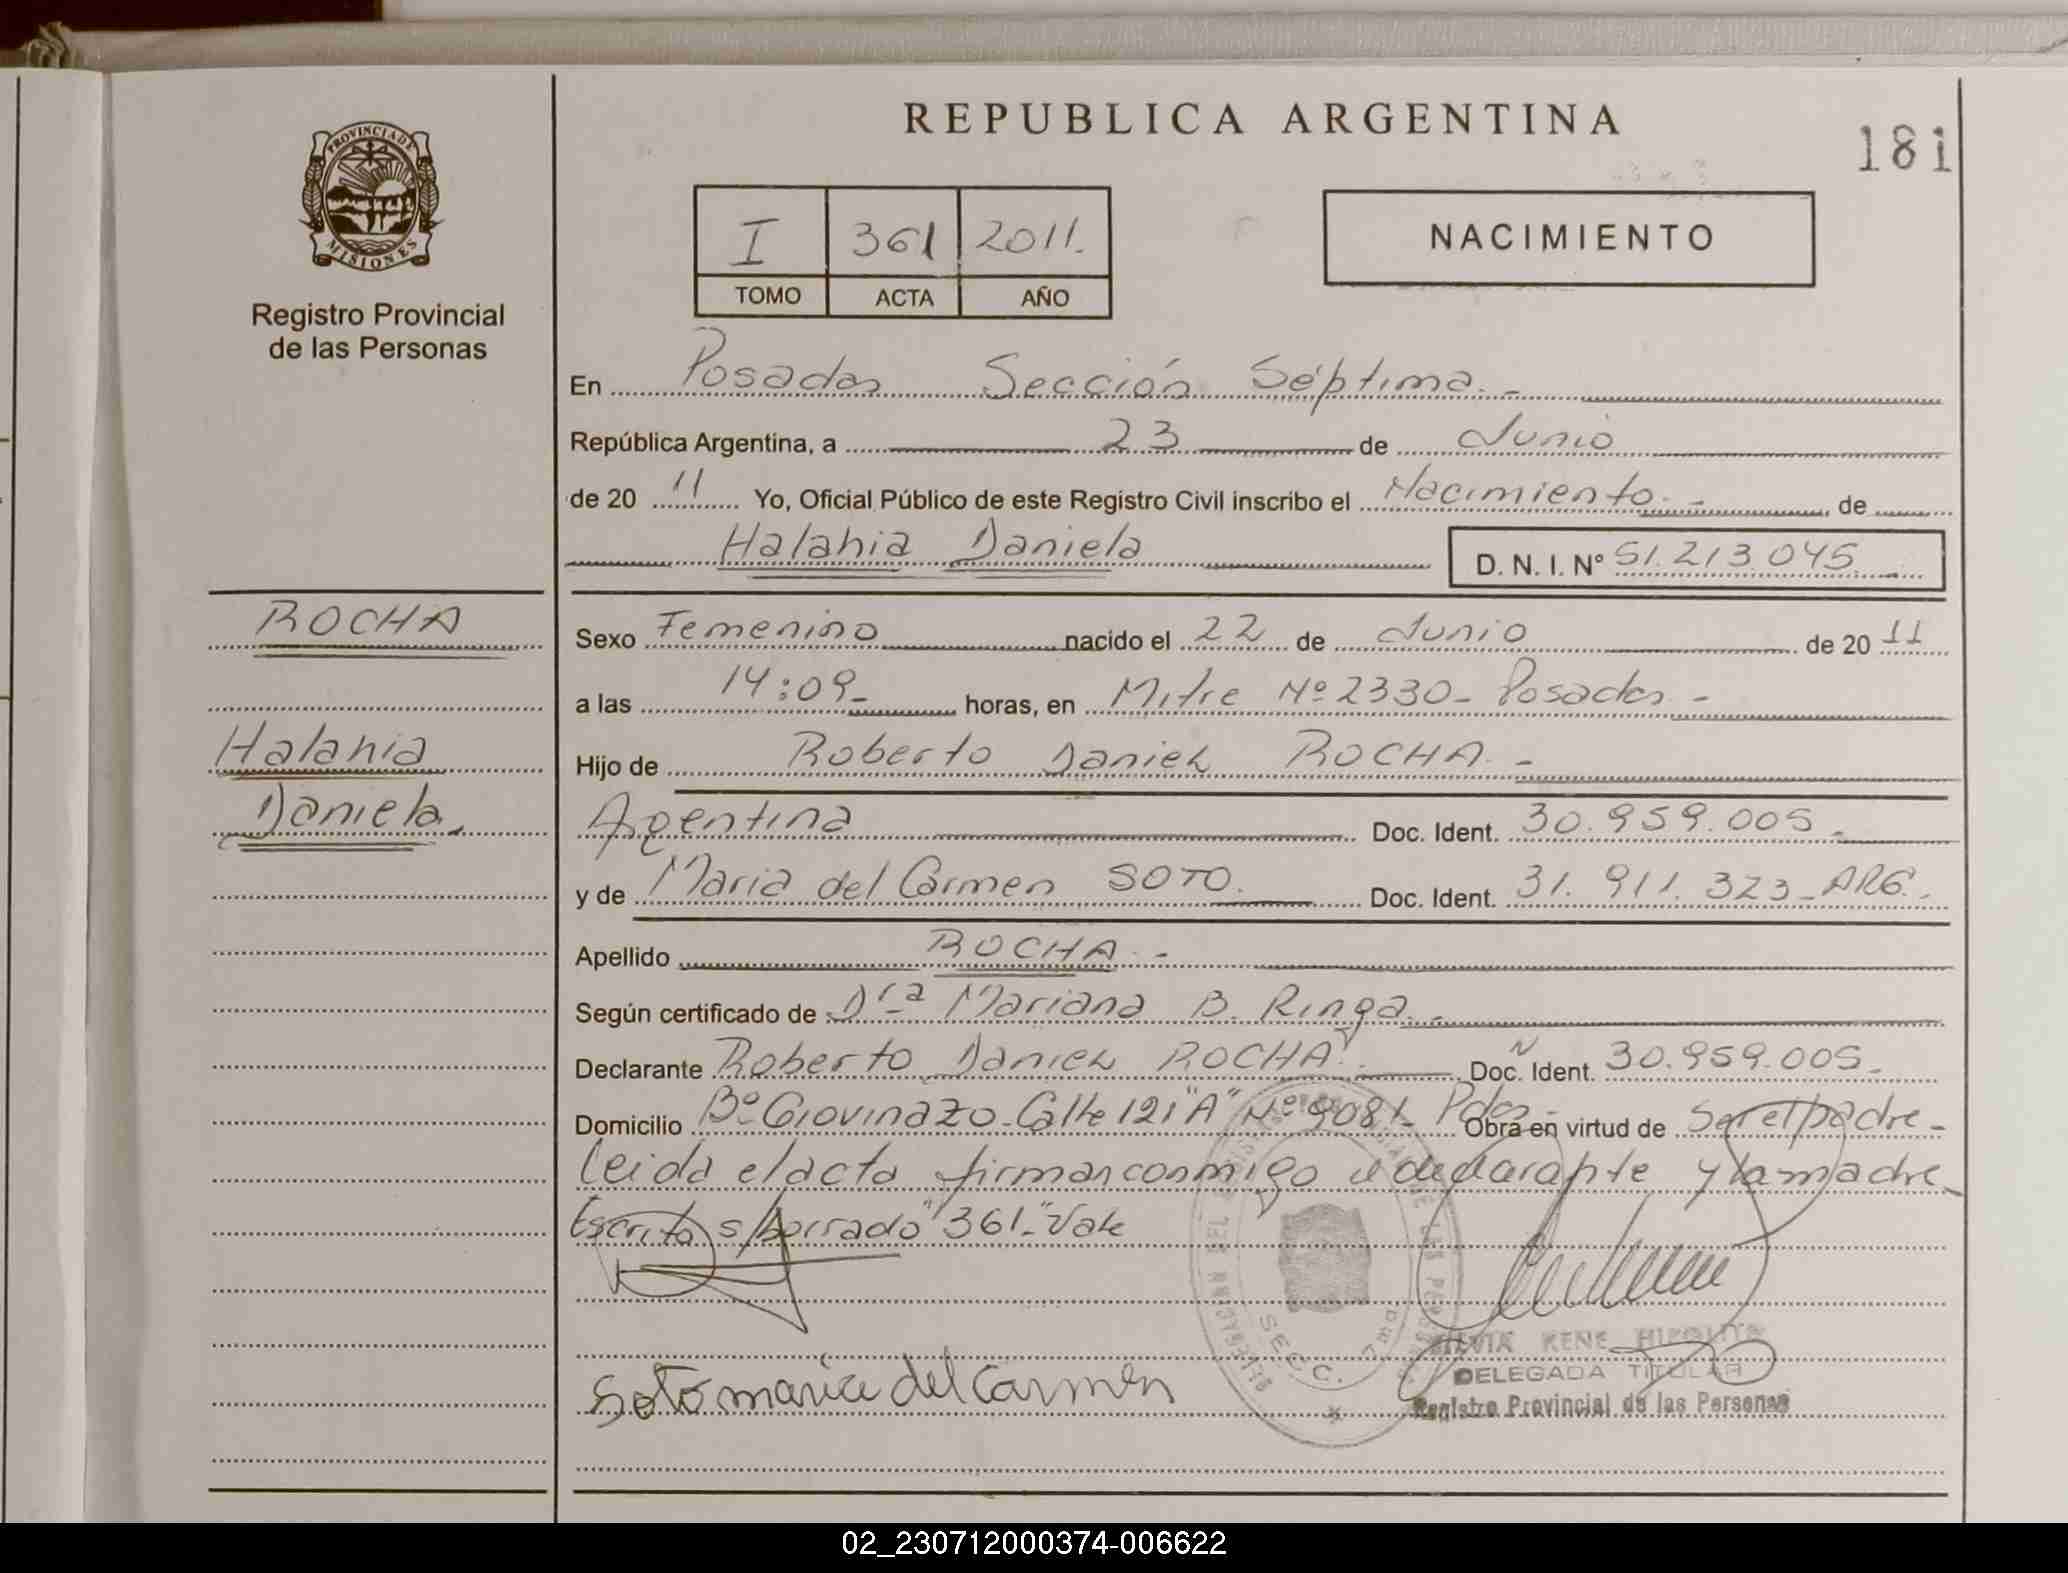 REPUBLICA ARGENTINA
181
PROVINCIA DE
MISIONES
Registro Provincial
de las Personas
I 361 2011.
TOMO ACTA AÑO
NACIMIENTO
En Posadas Sección Séptima.-
República Argentina, a 23 de Junio
de 20 11 Yo, Oficial Público de este Registro Civil inscribo el Nacimiento.- de
Halahia Daniela D. N. I. Nº 51.213.045
ROCHA
Halahia
Daniela.
Sexo Femenino nacido el 22 de Junio de 20 11
a las 14:09- horas, en Mitre Nº 2330- Posadas-
Hijo de Roberto Daniel ROCHA.-
Argentina Doc. Ident. 30.959.005-
y de Maria del Carmen SOTO. Doc. Ident. 31.911.323-ARG.-
Apellido ROCHA.-
Según certificado de Dra Mariana B. Ringa.-
Declarante Roberto Daniel ROCHA.- Doc. Ident. 30.959.005-
Domicilio Bº Giovinazo-Calle 121"A" Nº 9081- Pdas- Obra en virtud de Ser el padre-
Leida el acta firman conmigo el declarante y la madre-
Escrito s/borrado "361-" Vale
Soto maria del Carmen
SECC. 7ma
SILVIA RENE HIPOLITO
DELEGADA TITULAR
Registro Provincial de las Personas
02_230712000374-006622